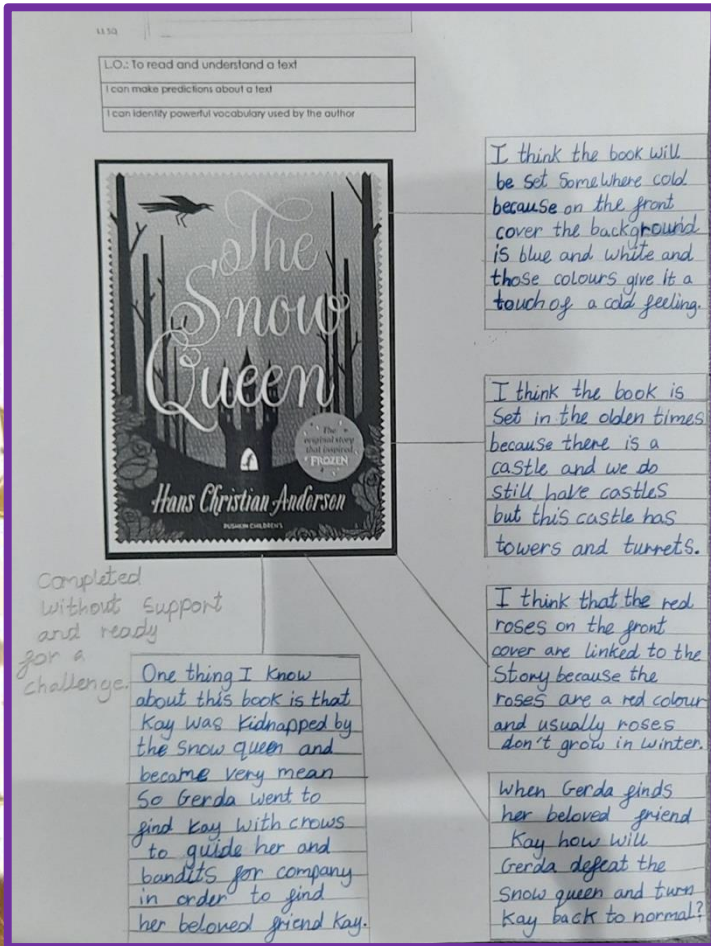 L.O.: To read and understand a text
I can make predictions about a text
I can identify powerful vocabulary used by the author
The
Snow
Queen
The
original story
that inspired
FROZEN
Hans Christian Andersen
PUSHKIN CHILDREN'S
I think the book will
be set Somewhere cold
because on the front
cover the background
is blue and white and
those colours give it a
touch of a cold feeling.
I think the book is
Set in the olden times
because there is a
castle and we do
still have castles
but this castle has
towers and turrets.
I think that the red
roses on the front
cover are linked to the
Story because the
roses are a red colour
and usually roses
don't grow in winter.
When Gerda finds
her beloved friend
Kay how will
Gerda defeat the
Snow queen and turn
Kay back to normal?
Completed
without support
and ready
for a
challenge.
One thing I know
about this book is that
Kay was kidnapped by
the snow queen and
became very mean
So Gerda went to
find Kay with crows
to guide her and
bandits for company
in order to find
her beloved friend Kay.